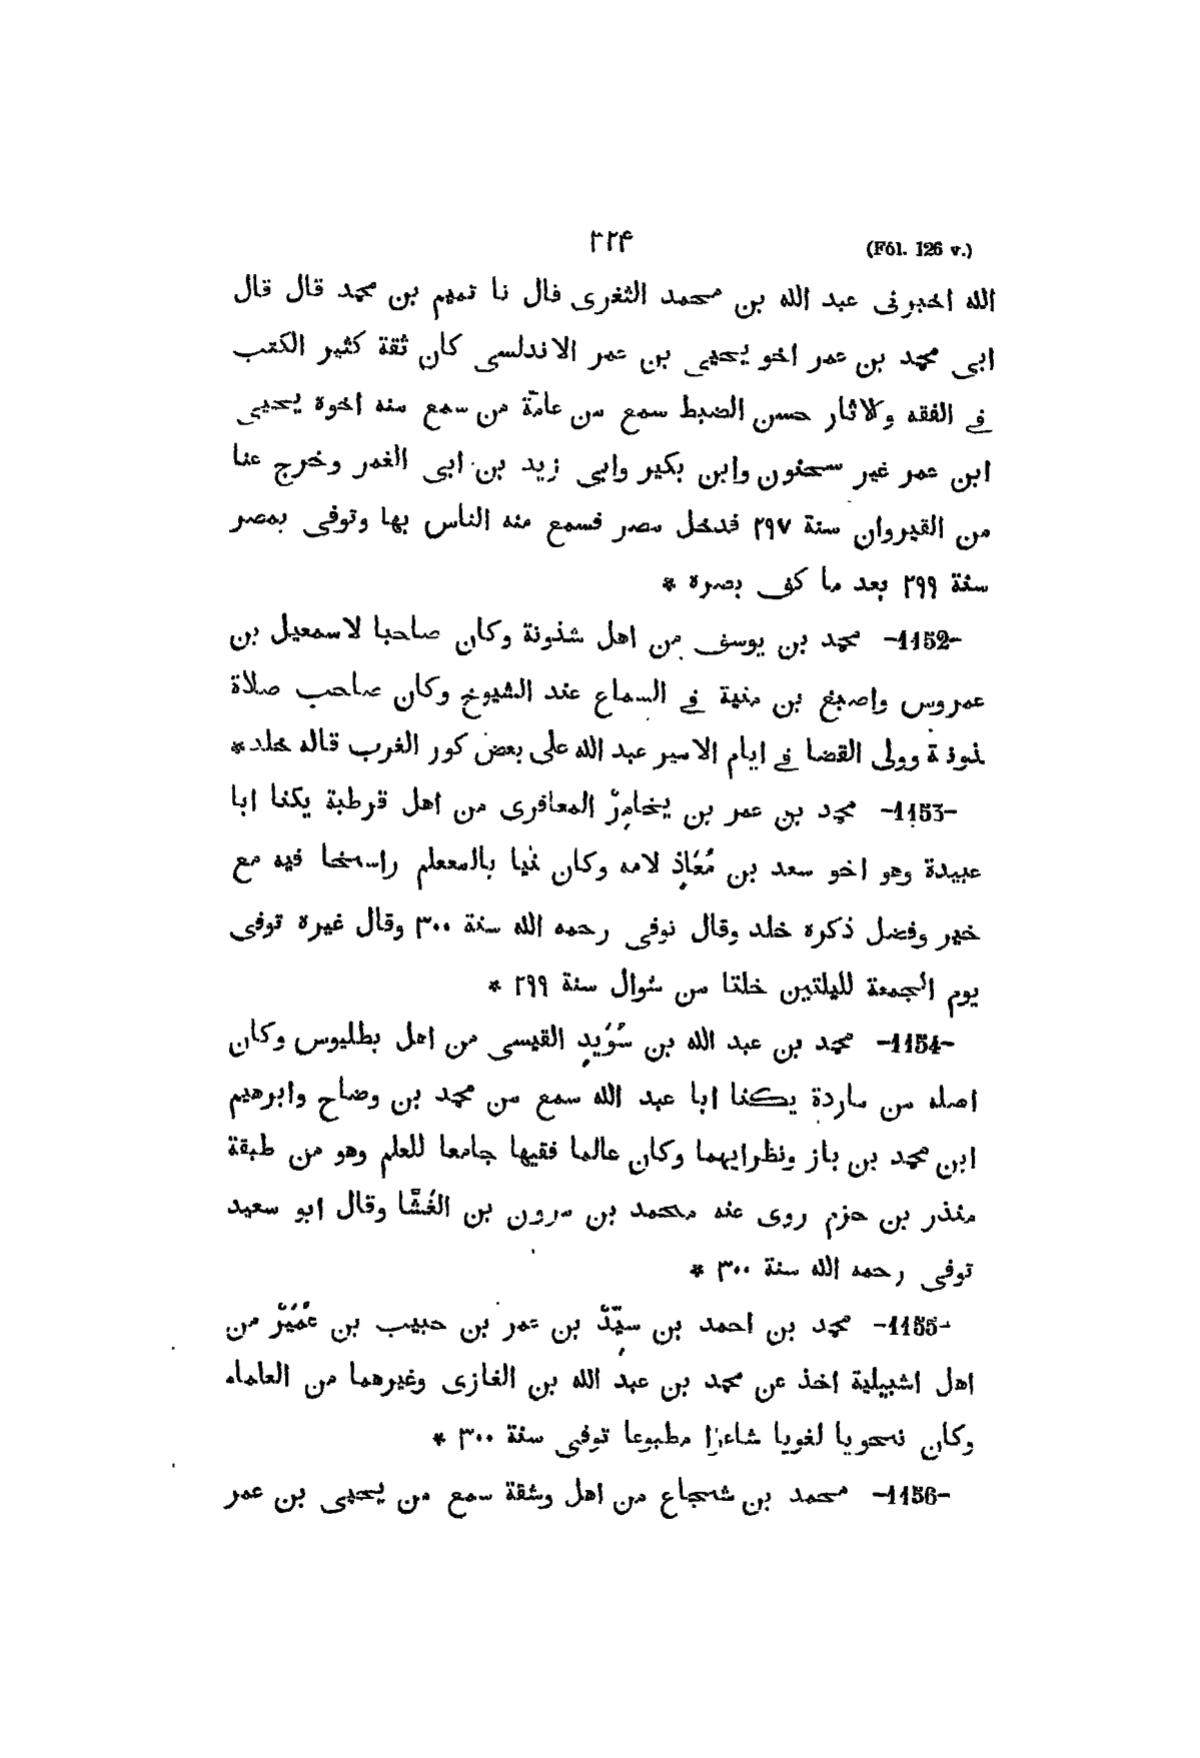 ٣٢٤ (Fól. 126 v.)
الله اخبرنى عبد الله بن محمد الثغرى فال نا تميم بن محمد قال قال
ابى محمد بن عمر اخو يحيى بن عمر الاندلسى كان ثقة كثير الكتب
فى الفقه ولاثار حسن الضبط سمع من عامّة من سمع منه اخوة يحيى
ابن عمر غير سحنون وابن بكير وابى زيد بن ابى الغمر وخرج عنا
من القيروان سنة ٢٩٧ فدخل مصر فسمع منه الناس بها وتوفى بمصر
سنة ٢٩٩ بعد ما كف بصرة *
-1152- محمد بن يوسف من اهل شذونة وكان صاحبا لاسمعيل بن
عمروس واصبغ بن منية فى السماع عند الشيوخ وكان صاحب صلاة
وولى القضا فى ايام الامير عبد الله على بعض كور الغرب قاله خلد*
-1153- محمد بن عمر بن يخامِرْ المعافرى من اهل قرطبة يكنا ابا
عبيدة وهو اخو سعد بن مُعَاذٍ لامه وكان بالمعلم راسخا فيه مع
خير وفضل ذكرة خلد وقال نوفى رحمه الله سنة ٣٠٠ وقال غيرة توفى
يوم الجمعة لليلتين خلتا من شوال سنة ٢٩٩ *
-1154- محمد بن عبد الله بن سُوَيدٍ القيسى من اهل بطليوس وكان
اصله من ماردة يكنا ابا عبد الله سمع من محمد بن وضاح وابرهيم
ابن محمد بن باز ونظرايهما وكان عالما فقيها جامعا للعلم وهو من طبقة
منذر بن حزم روى عنه محمد بن مرون بن الغُشَّا وقال ابو سعيد
توفى رحمه الله سنة ٣٠٠ *
-1155- محمد بن احمد بن سيِّدْ بن عمر بن حبيب بن عُمَيْرْ من
اهل اشبيلية اخذ عن محمد بن عبد الله بن الغازى وغيرهما من العلماء
وكان نحويا لغويا شاعرا مطبوعا توفى سنة ٣٠٠ *
-1156- محمد بن شجاع من اهل وشقة سمع من يحيى بن عمر